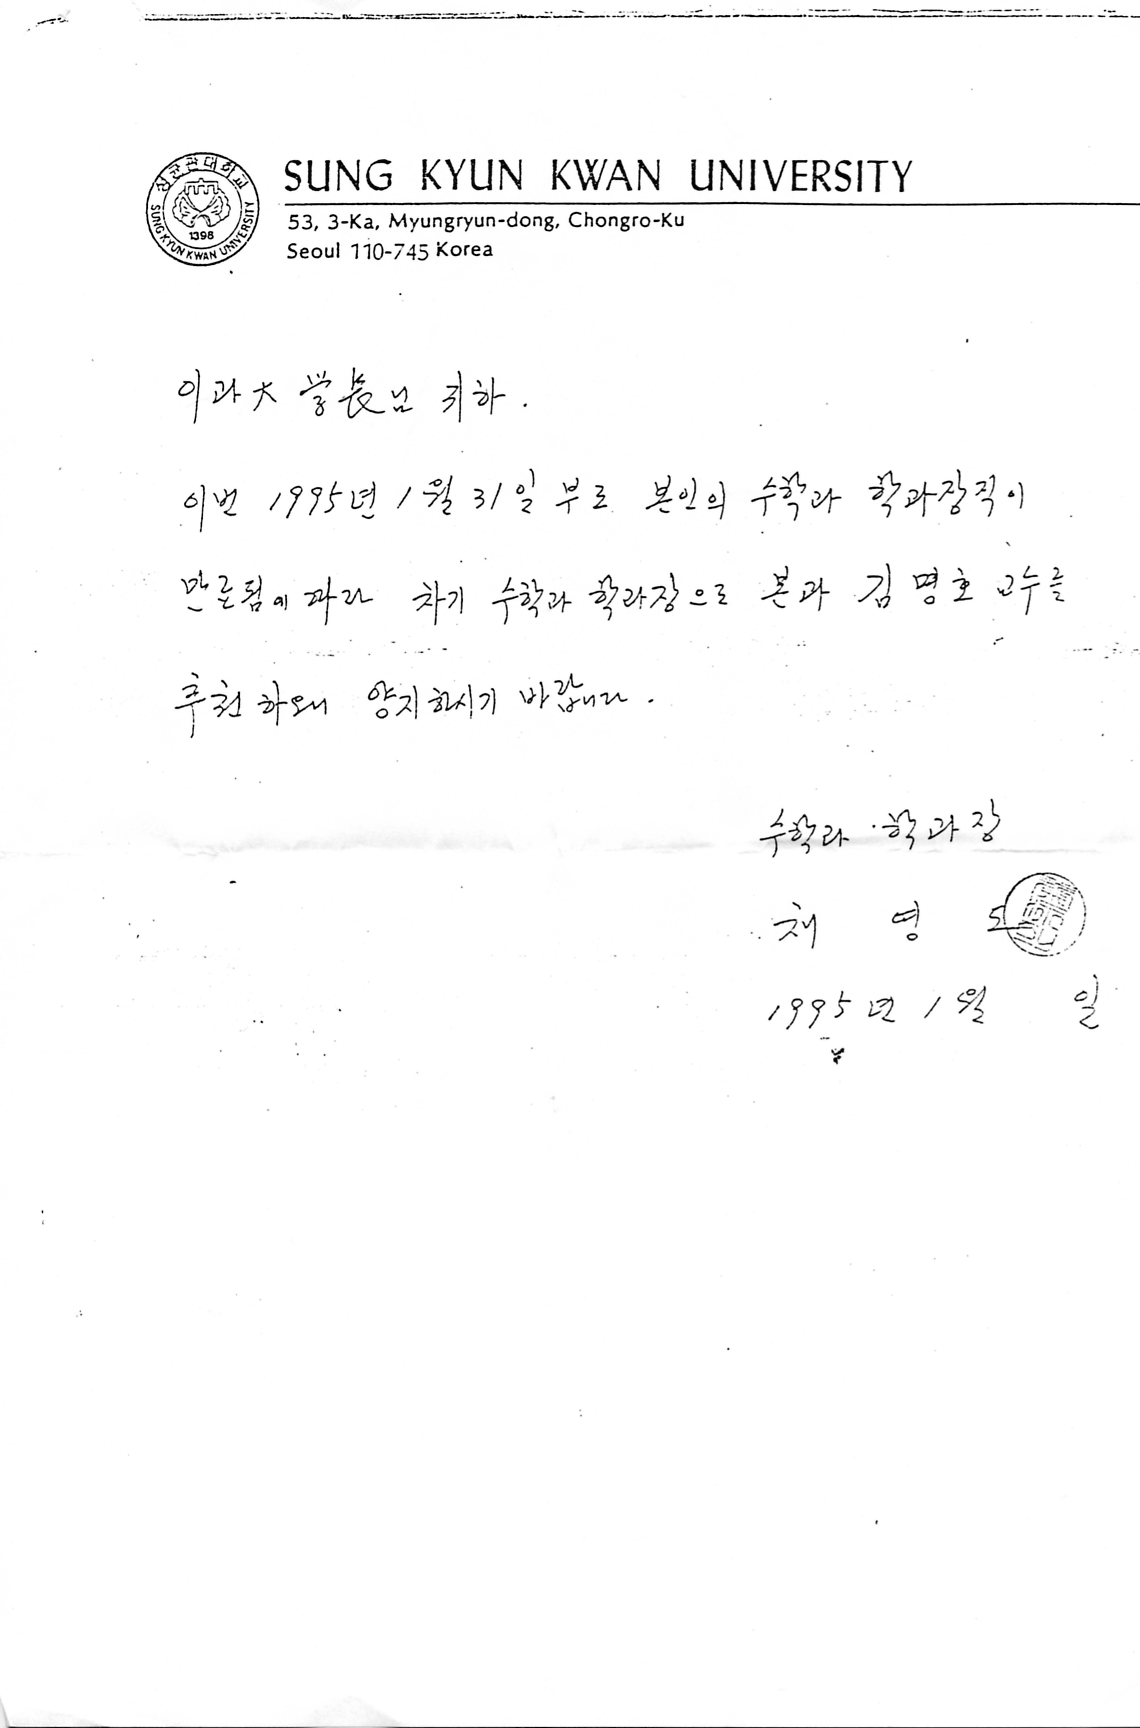 성균관대학교
SUNG KYUN KWAN UNIVERSITY
1398
SUNG KYUN KWAN UNIVERSITY
53, 3-Ka, Myungryun-dong, Chongro-Ku
Seoul 110-745 Korea
이과大 学長님 귀하.
이번 1995년 1월 31일 부로 본인의 수학과 학과장직이
만료됨에 따라 차기 수학과 학과장으로 본과 김명호 교수를
추천하오니 양지하시기 바랍니다.
수학과 학과장
채 영 도
1995년 1월 일